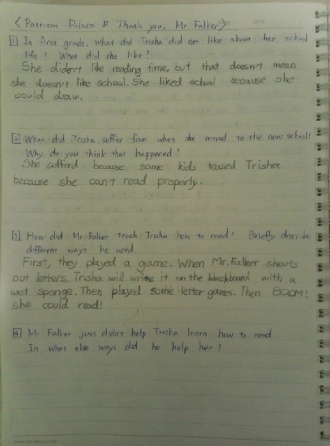 < Patricia Polacco # Thank you, Mr. Falker>
1 In first grade, what did Trisha did not like about her school
life? What did she like?
She didn't like reading time, but that doesn't mean
she doesn't like school. She liked school because she
could draw.
2 What did Trisha suffer from when she moved to the new school?
Why do you think that happened?
She suffered because some kids teased Trisha
because she can't read properly.
3 How did Mr Falker teach Trisha how to read? Briefly describe
different ways he used.
First, they played a game. When Mr. Falker shouts
out letters, Trisha will write it on the blackboard with a
wet sponge. Then played some letter games. Then BOOM!
she could read!
4 Mr Falker just didn't help Trisha learn how to read.
In what else ways did he help her?